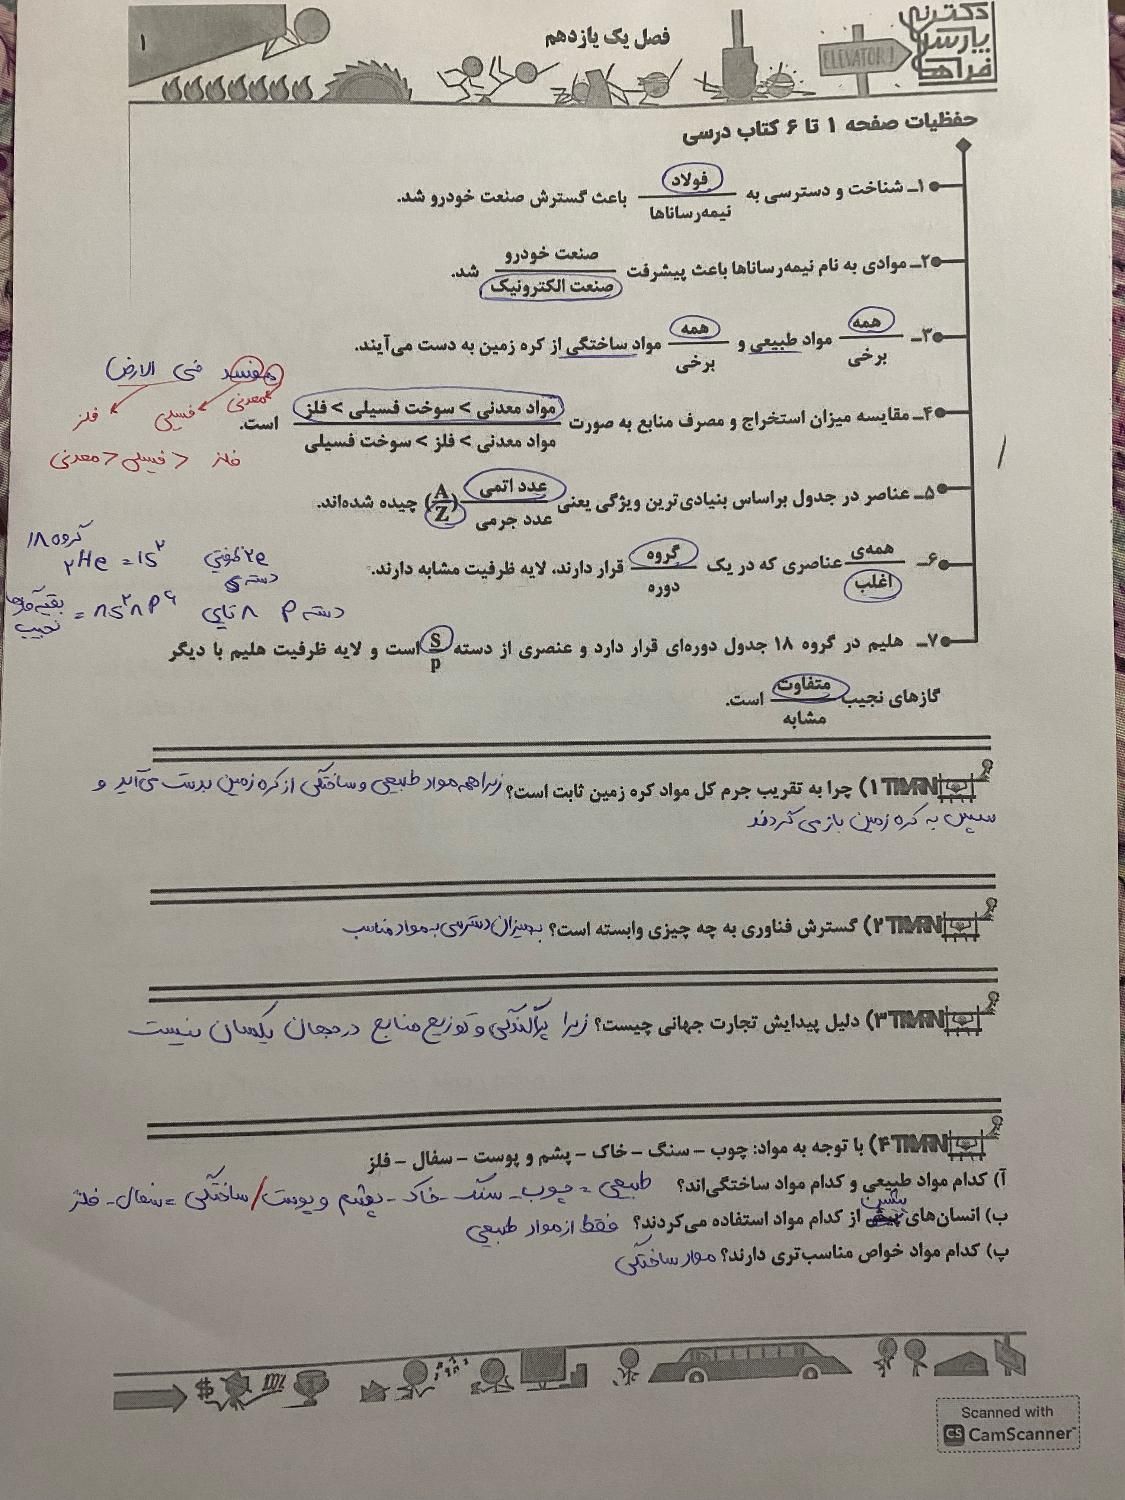 ۱
فصل یک یازدهم
ELEVATOR
دکترنی
پارسا
فراهانی
حفظیات صفحه ۱ تا ۶ کتاب درسی
۱ـ شناخت و دسترسی به فولاد / نیمه‌رساناها باعث گسترش صنعت خودرو شد.
۲ـ موادی به نام نیمه‌رساناها باعث پیشرفت صنعت خودرو / صنعت الکترونیک شد.
۳ـ همه / برخی مواد طبیعی و همه / برخی مواد ساختگی از کره زمین به دست می‌آیند.
مفسد فی الارض
معدنی فسیلی فلز
۴ـ مقایسه میزان استخراج و مصرف منابع به صورت مواد معدنی > سوخت فسیلی > فلز / مواد معدنی > فلز > سوخت فسیلی است.
فلز < فسیلی < معدنی
۵ـ عناصر در جدول براساس بنیادی‌ترین ویژگی یعنی عدد اتمی / عدد جرمی (A/Z) چیده شده‌اند.
۶ـ همه‌ی / اغلب عناصری که در یک گروه / دوره قرار دارند، لایه ظرفیت مشابه دارند.
گروه ۱۸
₂He = 1S² 2e ظرفیتی
دسته‌ی S
بقیه گازها نجیب = nS²nP⁶ ۸ تایی دسته P
۷ـ هلیم در گروه ۱۸ جدول دوره‌ای قرار دارد و عنصری از دسته s / p است و لایه ظرفیت هلیم با دیگر
گازهای نجیب متفاوت / مشابه است.
TIMRIN ۱) چرا به تقریب جرم کل مواد کره زمین ثابت است؟ زیرا همه مواد طبیعی و ساختگی از کره زمین بدست می‌آید و
سپس به کره زمین باز می گردند
TIMRIN ۲) گسترش فناوری به چه چیزی وابسته است؟ به میزان دسترسی به مواد مناسب
TIMRIN ۳) دلیل پیدایش تجارت جهانی چیست؟ زیرا پراکندگی و توزیع منابع در جهان یکسان نیست
TIMRIN ۴) با توجه به مواد: چوب – سنگ – خاک – پشم و پوست – سفال – فلز
آ) کدام مواد طبیعی و کدام مواد ساختگی‌اند؟ طبیعی = چوب - سنگ - خاک - پشم و پوست / ساختگی = سفال - فلز
ب) انسان‌های پیشین از کدام مواد استفاده می‌کردند؟ فقط از مواد طبیعی
پ) کدام مواد خواص مناسب‌تری دارند؟ مواد ساختگی
Scanned with
CS CamScanner